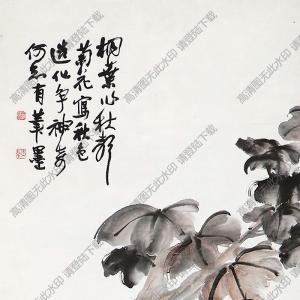 桐葉心秋聲
菊花寫秋色
造化爭神奇
何必有筆墨
高清图无此水印 请登陆下载
高清图无此水印 请登陆下载
高清图无此水印 请登陆下载
高清图无此水印 请登陆下载
高清图无此水印 请登陆下载
高清图无此水印 请登陆下载